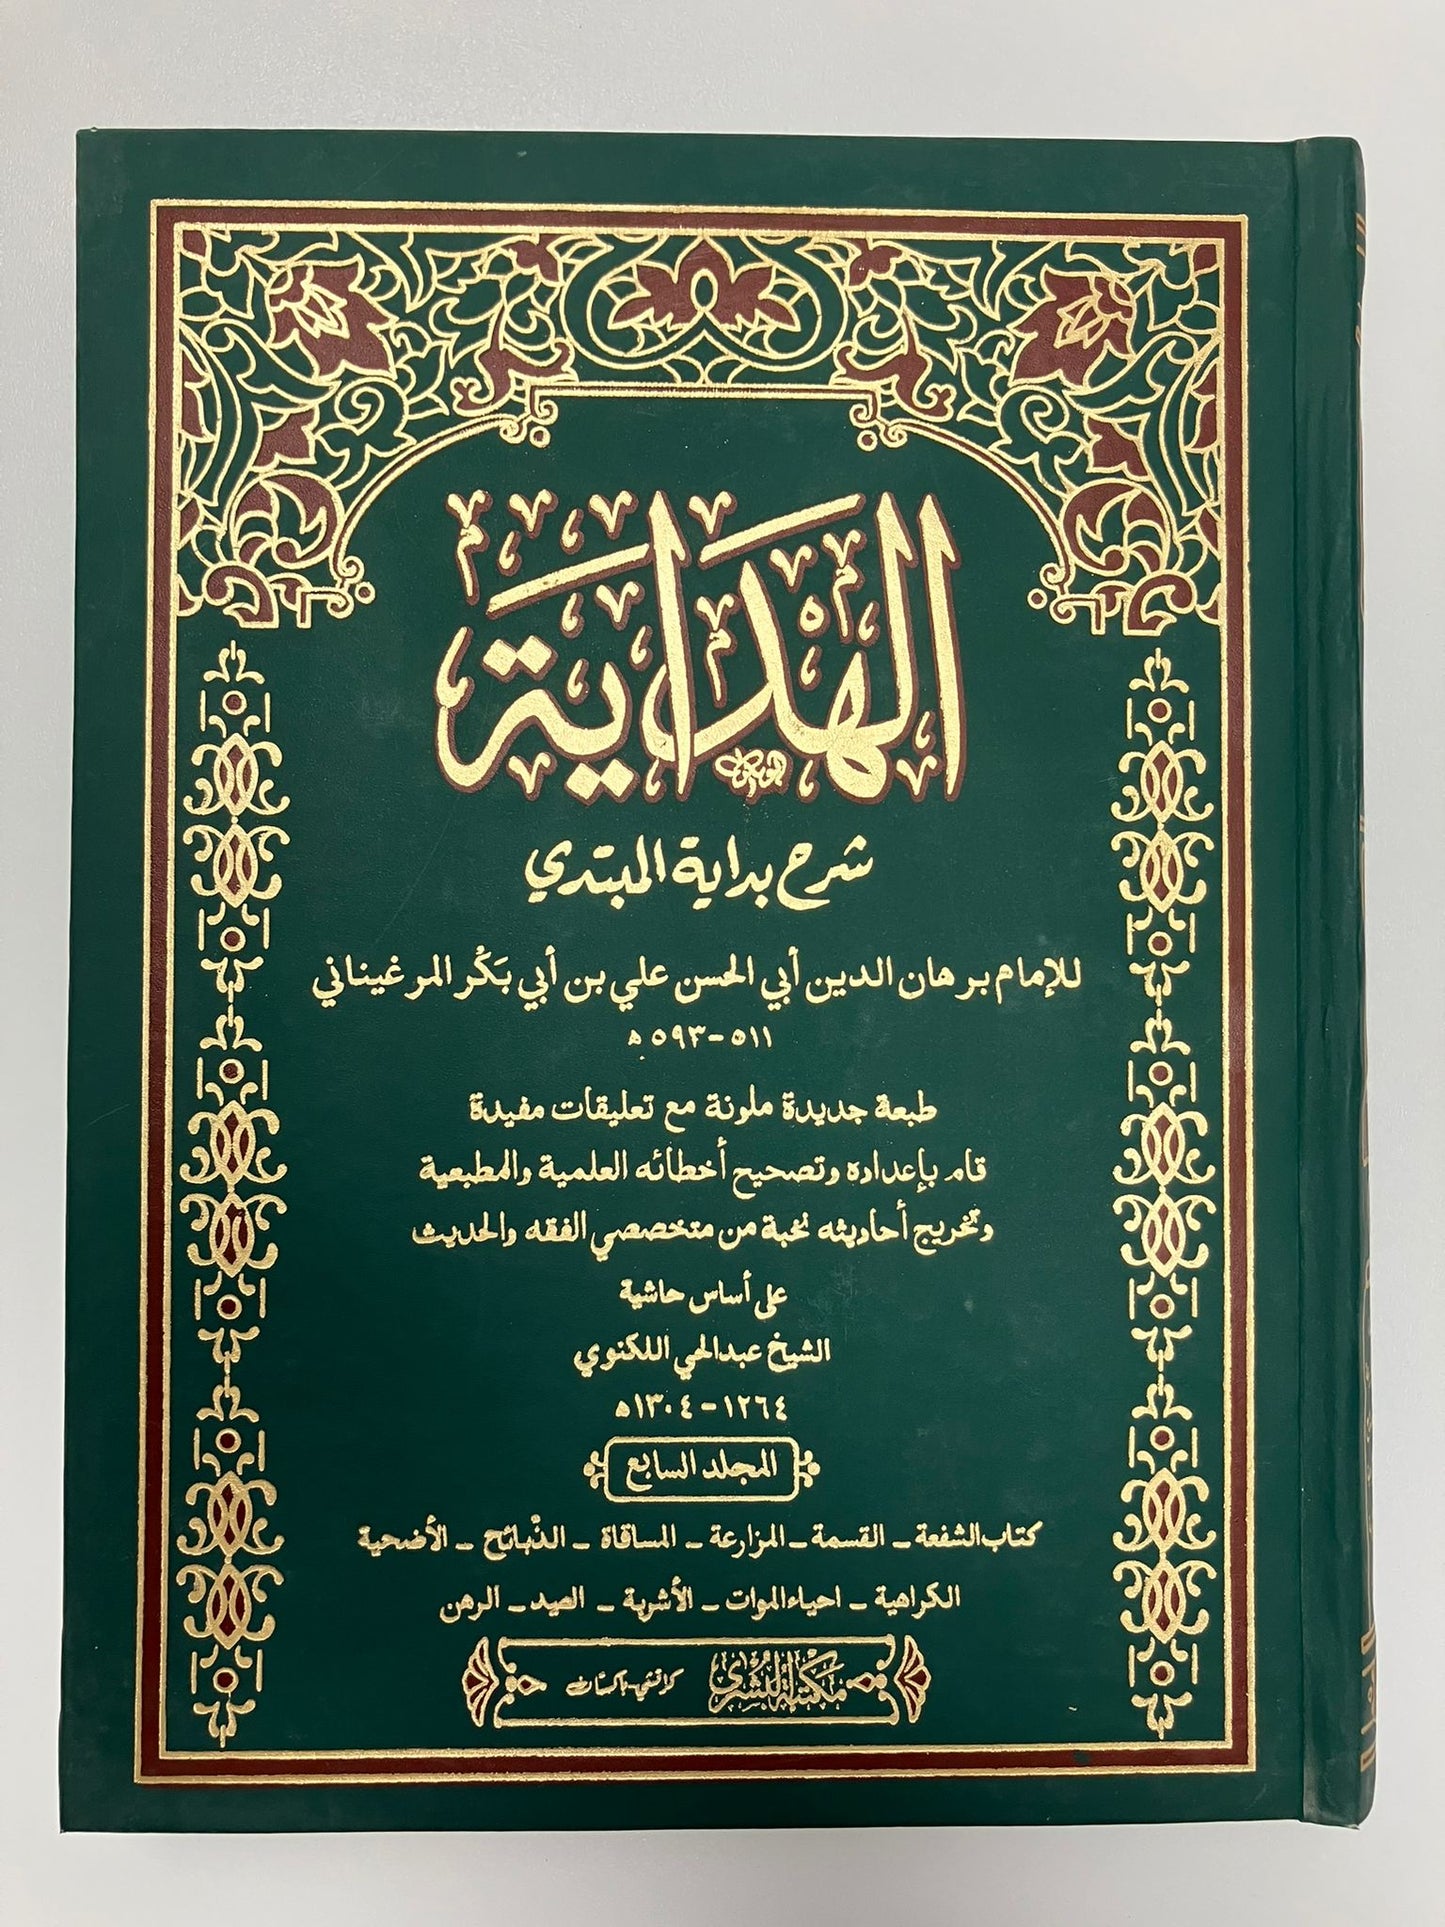 الهداية
شرح بداية المبتدي
للإمام برهان الدين أبي الحسن علي بن أبي بَكْر المرغيناني
٥١١-٥٩٣ ه
طبعة جديدة ملونة مع تعليقات مفيدة
قام بإعداده وتصحيح أخطائه العلمية والمطبعية
وتخريج أحاديثه نخبة من متخصصي الفقه والحديث
على أساس حاشية
الشيخ عبدالحي اللكنوي
١٢٦٤-١٣٠٤ه
المجلد السابع
كتاب الشفعة - القسمة - المزارعة - المساقاة - الذّبائح - الأضحية
الكراهية - احياءالموات - الأشربة - الصيد - الرهن
مكتبة البشرى كراتشي-باكستان